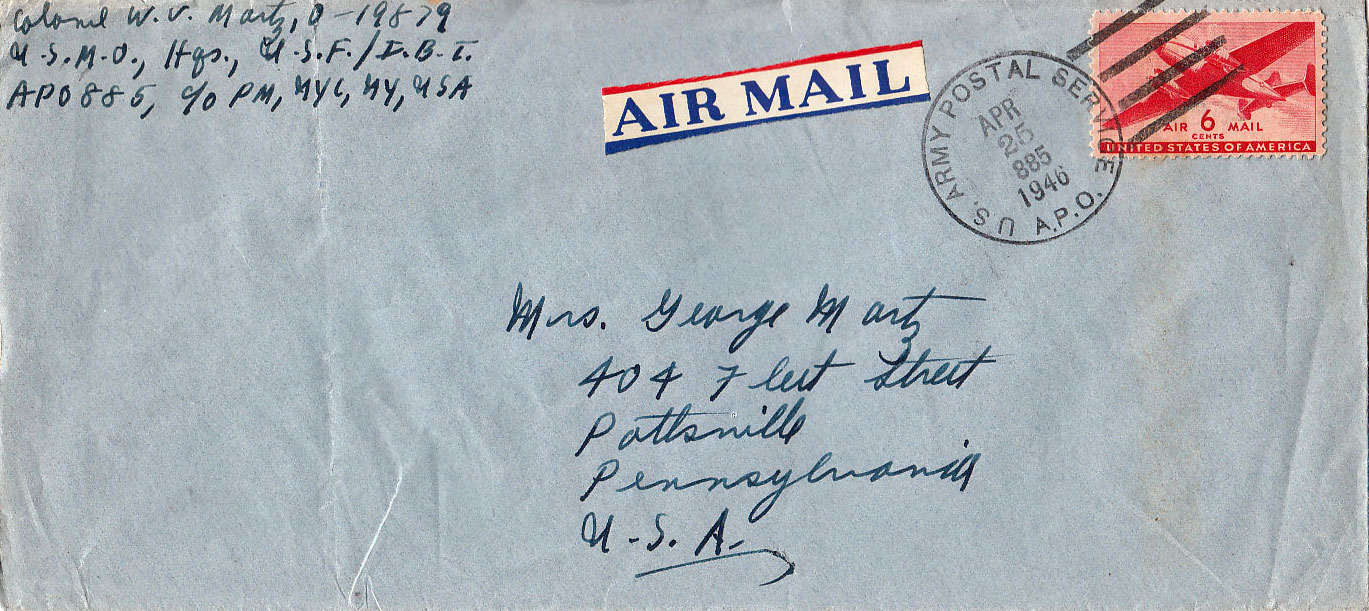 Colonel W. V. Martz, O-19879
U.S.M.O., Hqs., U.S.F./I.B.T.
APO 885, c/o PM, NYC, NY, USA
AIR MAIL
U.S. ARMY POSTAL SERVICE A.P.O.
APR
25
885
1946
AIR 6 MAIL
CENTS
UNITED STATES OF AMERICA
Mrs. George Martz
404 Fleet Street
Pottsville
Pennsylvania
U.S.A.